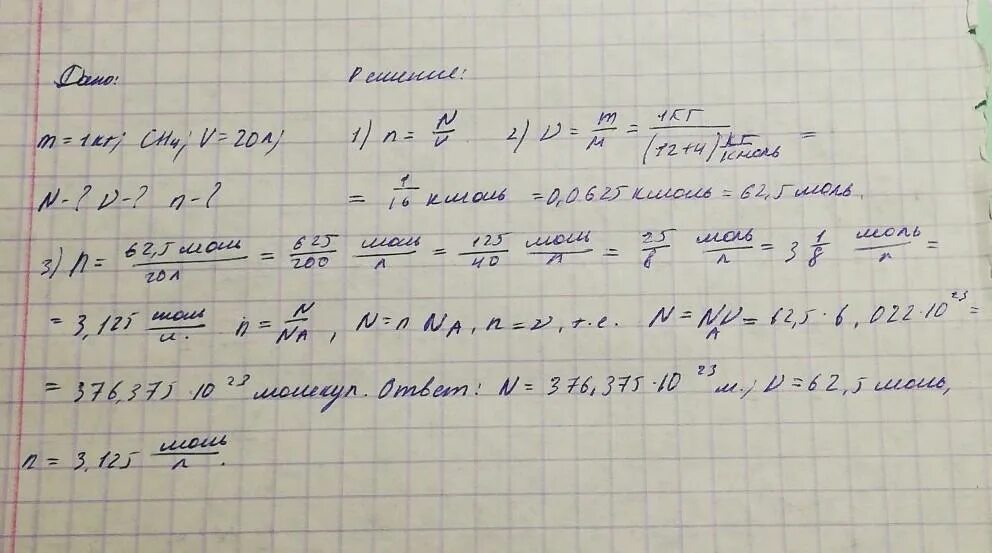 Дано: Решение:
m = 1кг; CH4; V = 20л; 1) n = N/V 2) ν = m/M = 1кг/(12+4) кг/кмоль =
N-? ν-? n-? = 1/16 кмоль = 0,0625 кмоль = 62,5 моль.
3) n = 62,5 моль/20л = 625/200 моль/л = 125/40 моль/л = 25/8 моль/л = 3 1/8 моль/л =
= 3,125 моль/л. n = N/NA, N = n NA, n = ν, т.е. N = NAν = 62,5 · 6,022·10^23 =
= 376,375·10^23 молекул. Ответ: N = 376,375·10^23 м.; ν = 62,5 моль,
n = 3,125 моль/л.